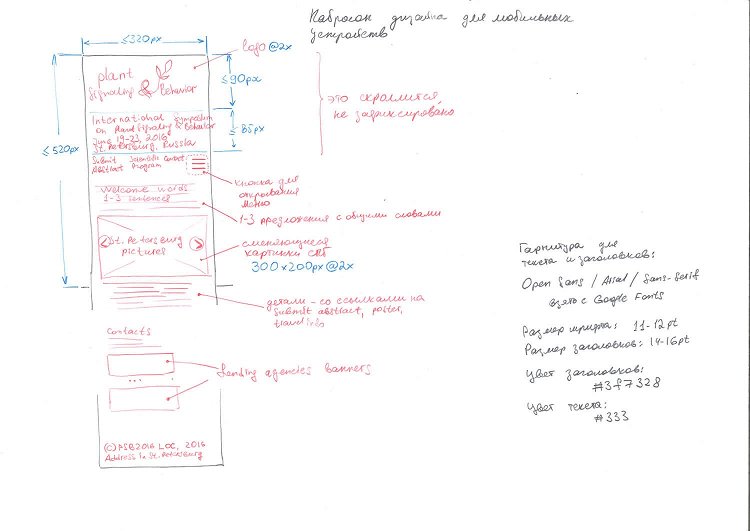 Набросок дизайна для мобильных
устройств
≤320px
logo @2x
plant
Signaling & Behavior
≤90px
это скроллится,
не зафиксировано
International Symposium
on Plant Signaling & Behavior
June 19-23, 2016
St. Petersburg, Russia
≤85px
≤520px
Submit Scientific Contact
Abstract Program
кнопка для
открывания
меню
Welcome words
1-3 sentences
1-3 предложения с общими словами
St. Petersburg
pictures
сменяющиеся
картинки СПб
300x200px @2x
детали - со ссылками на
submit abstract, poster,
travel info
Contacts
...
Lending agencies banners
(C) PSB2016 LOC, 2016
Address in St. Petersburg
Гарнитура для
текста и заголовков:
Open Sans / Arial / Sans-Serif
взять с Google Fonts
Размер шрифта: 11-12pt
Размер заголовков: 14-16pt
Цвет заголовков:
#3f7328
Цвет текста:
#333